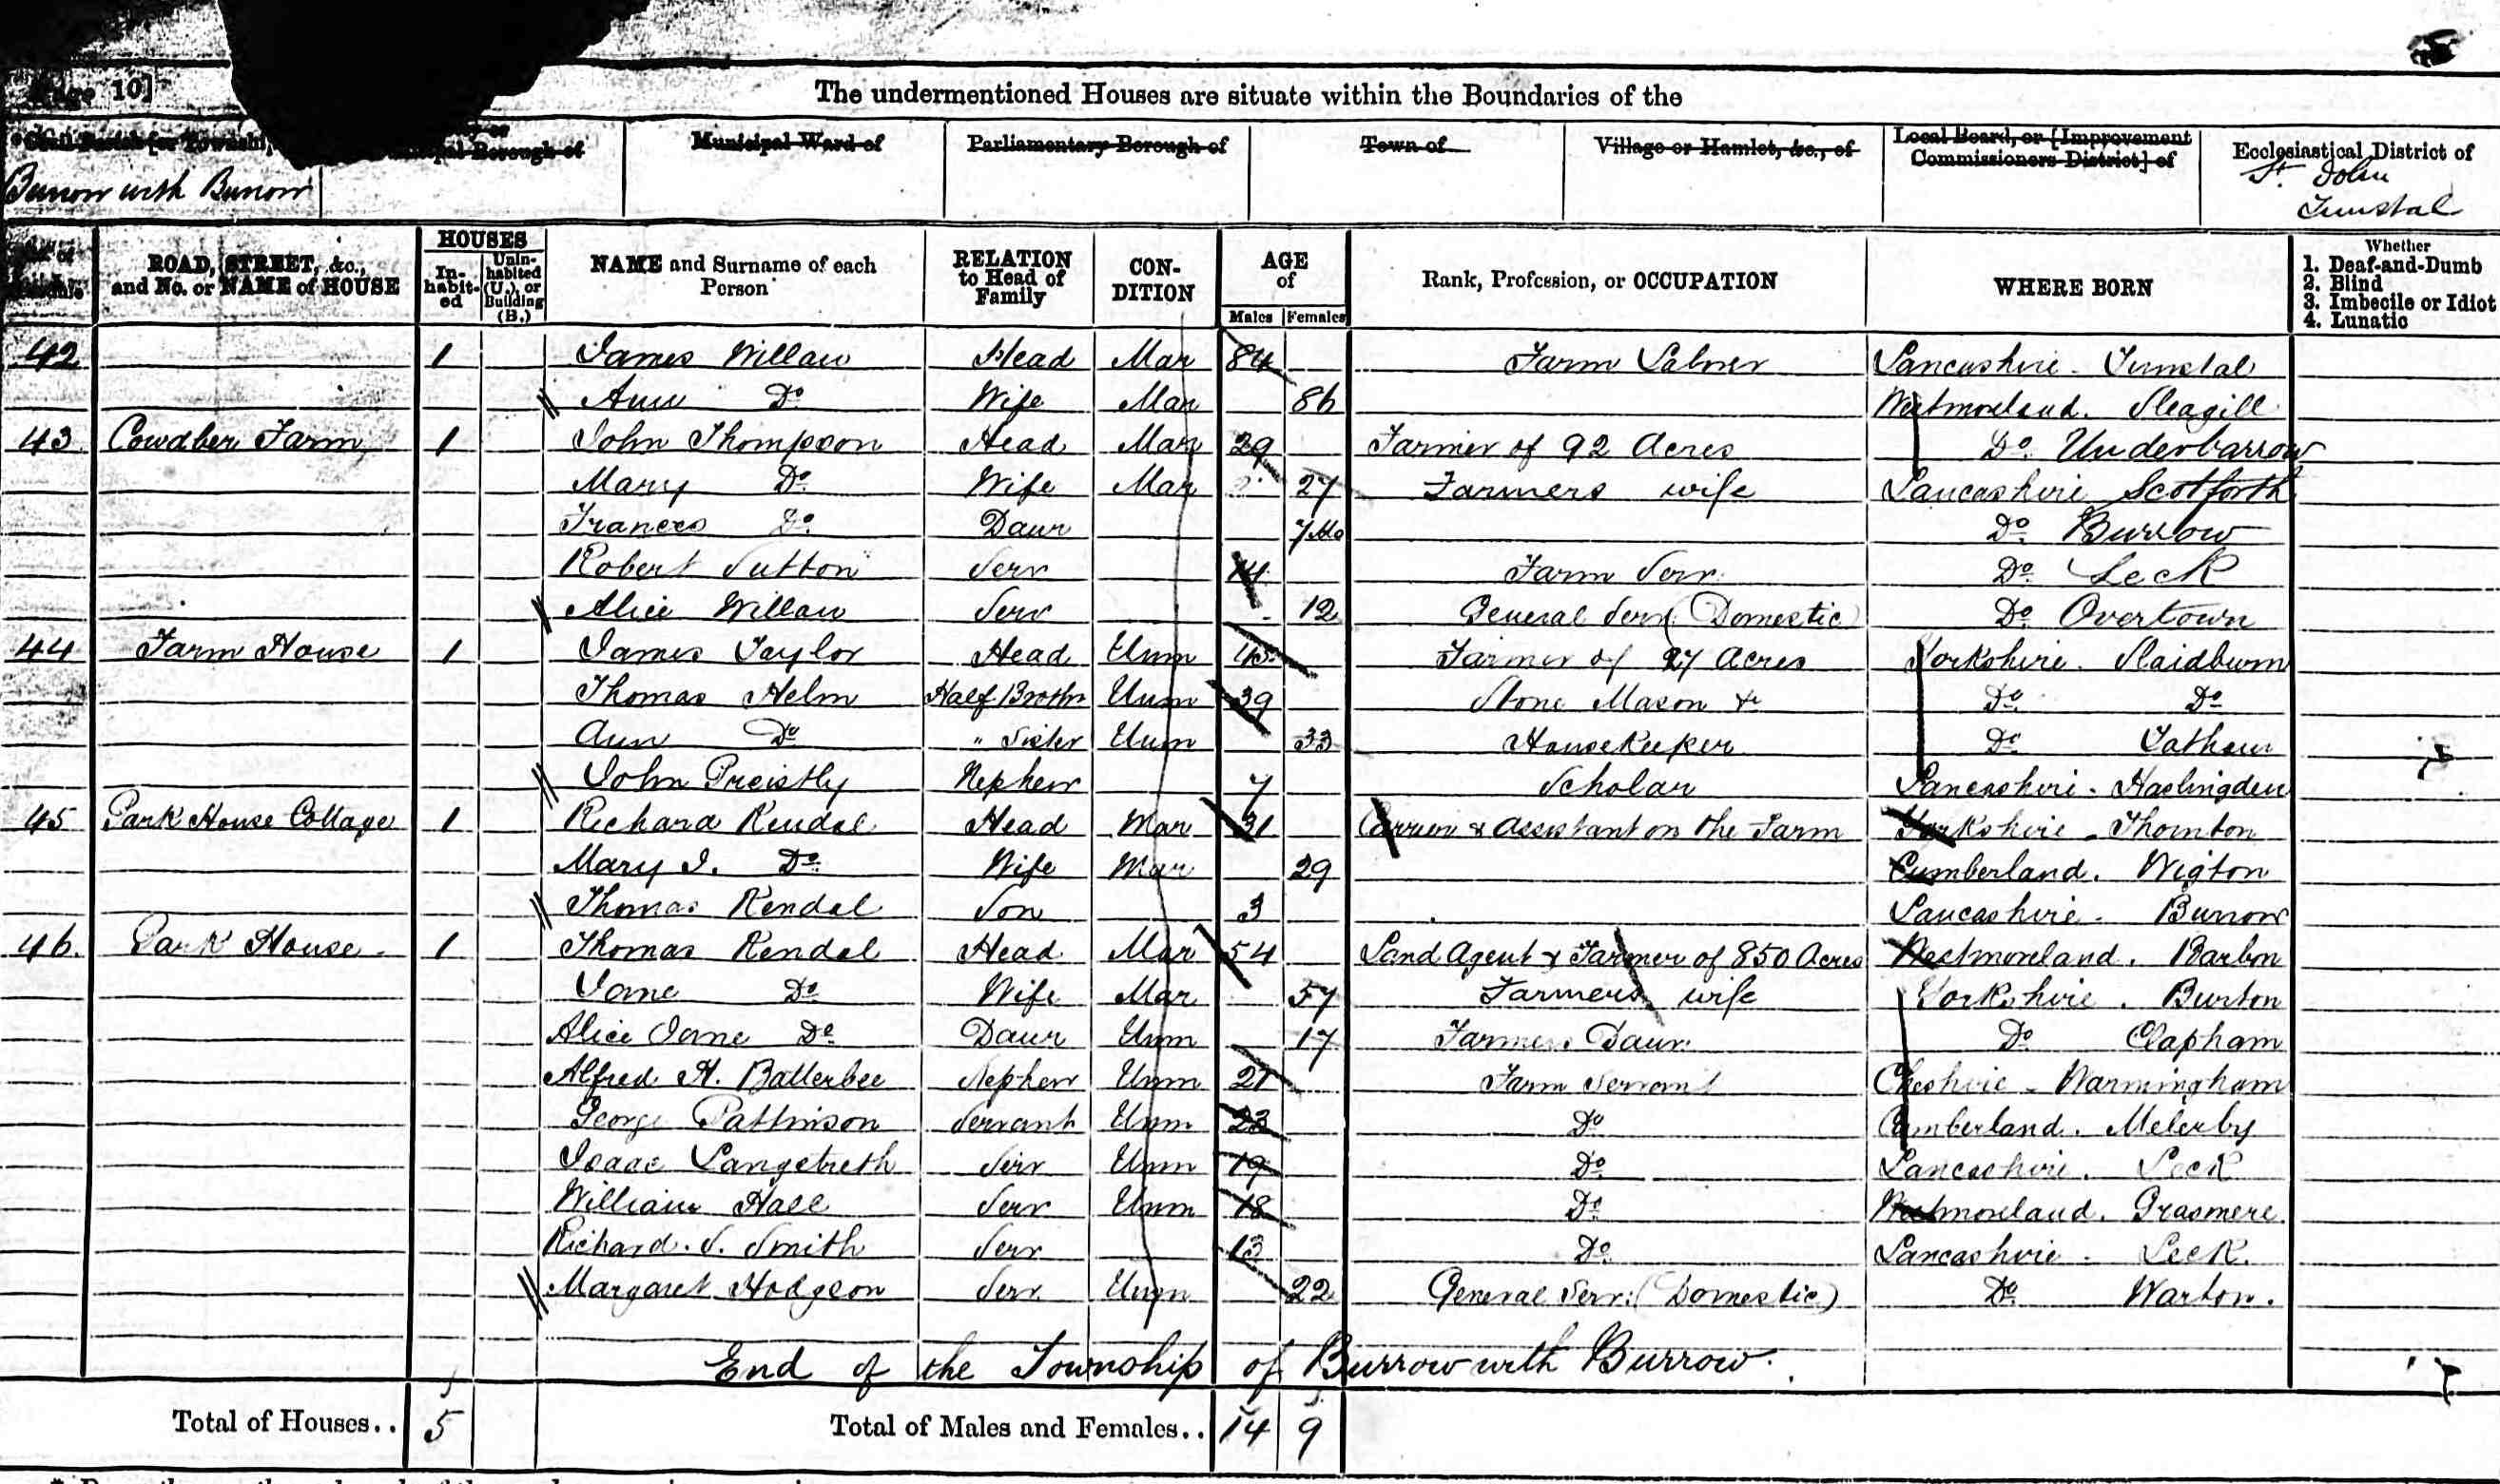 Page 10]
The undermentioned Houses are situate within the Boundaries of the
Civil Parish [or Township] Municipal Borough of Municipal Ward of Parliamentary Borough of Town of Village or Hamlet, &c., of Local Board, or [Improvement Commissioners District] of Ecclesiastical District of
Burrow with Burrow St. John Tunstal
ROAD, STREET, &c., and No. or NAME of HOUSE HOUSES Inhabited Uninhabited (U.), or Building (B.) NAME and Surname of each Person RELATION to Head of Family CONDITION AGE of Males Females Rank, Profession, or OCCUPATION WHERE BORN Whether 1. Deaf-and-Dumb 2. Blind 3. Imbecile or Idiot 4. Lunatic
42 1 James Willan Head Mar 84 Farm Labrer Lancashire - Tunstal
Ann Do Wife Mar 86 Westmoreland. Sleagill
43 Cowdber Farm 1 John Thompson Head Mar 29 Farmer of 92 Acres Do Underbarrow
Mary Do Wife Mar 27 Farmers wife Lancashire Scotforth
Frances Do Daur 7 Mo Do Burrow
Robert Sutton Serv 14 Farm Serv Do Leck
Alice Willan Serv 12 General Serv (Domestic) Do Overtown
44 Farm House 1 James Taylor Head Unm 45 Farmer of 27 Acres Yorkshire. Slaidburn
Thomas Helm Half Brothr Unm 39 Stone Mason Do Do
Ann Do " Sister Unm 33 HouseKeeper Do Tatham
John Preistly Nephew 7 Scholar Lancashire - Haslingden
45 Park House Cottage 1 Richard Kendal Head Mar 31 Carrier & Assistant on the Farm Yorkshire - Thornton
Mary I. Do Wife Mar 29 Cumberland. Wigton
Thomas Kendal Son 3 Lancashire - Burrow
46. Park House 1 Thomas Kendal Head Mar 54 Land Agent & Farmer of 850 Acres Westmoreland. Barbon
Jane Do Wife Mar 57 Farmers wife Yorkshire. Burton
Alice Jane Do Daur Unm 17 Farmers Daur. Do Clapham
Alfred H. Batterbee Nephew Unm 21 Farm Servant Cheshire - Warmingham
George Pattinson Servant Unm 23 Do Cumberland. Melerby
Isaac Langstreth Serv Unm 19 Do Lancashire. Leck
William Hall Serv Unm 18 Do Westmoreland. Grasmere.
Richard. S. Smith Serv 13 Do Lancashire - Leck.
Margaret Hodgson Serv. Unm 22 General Serv: (Domestic) Do Warton.
End of the Township of Burrow with Burrow.
Total of Houses.. 5 Total of Males and Females.. 14 9